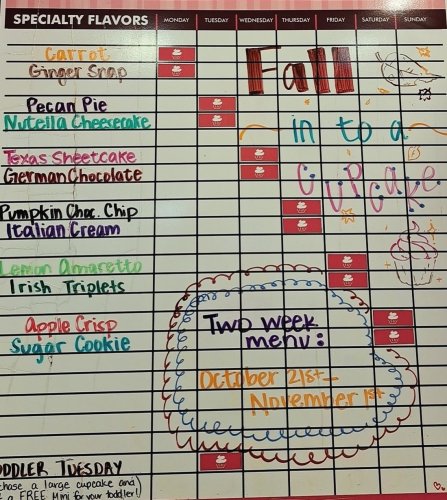 SPECIALTY FLAVORS MONDAY TUESDAY WEDNESDAY THURSDAY FRIDAY SATURDAY SUNDAY
Carrot
Ginger Snap
Fall
Pecan Pie
Nutella Cheesecake
in to a
Texas Sheetcake
German Chocolate
CUPCAKE
Pumpkin Choc. Chip
Italian Cream
Lemon Amaretto
Irish Triplets
Apple Crisp
Sugar Cookie
Two week
menu:
October 21st-
November 1st
ODDLER TUESDAY
chase a large cupcake and
a FREE Mini for your toddler!